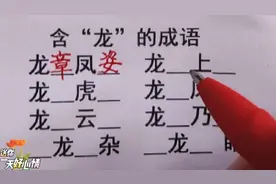 含“龙”的成语
龙章凤姿 龙__上__
龙__虎__ 龙__
龙__云__ 龙__乃__
__龙__杂 __龙__睛
送你
一天好心情